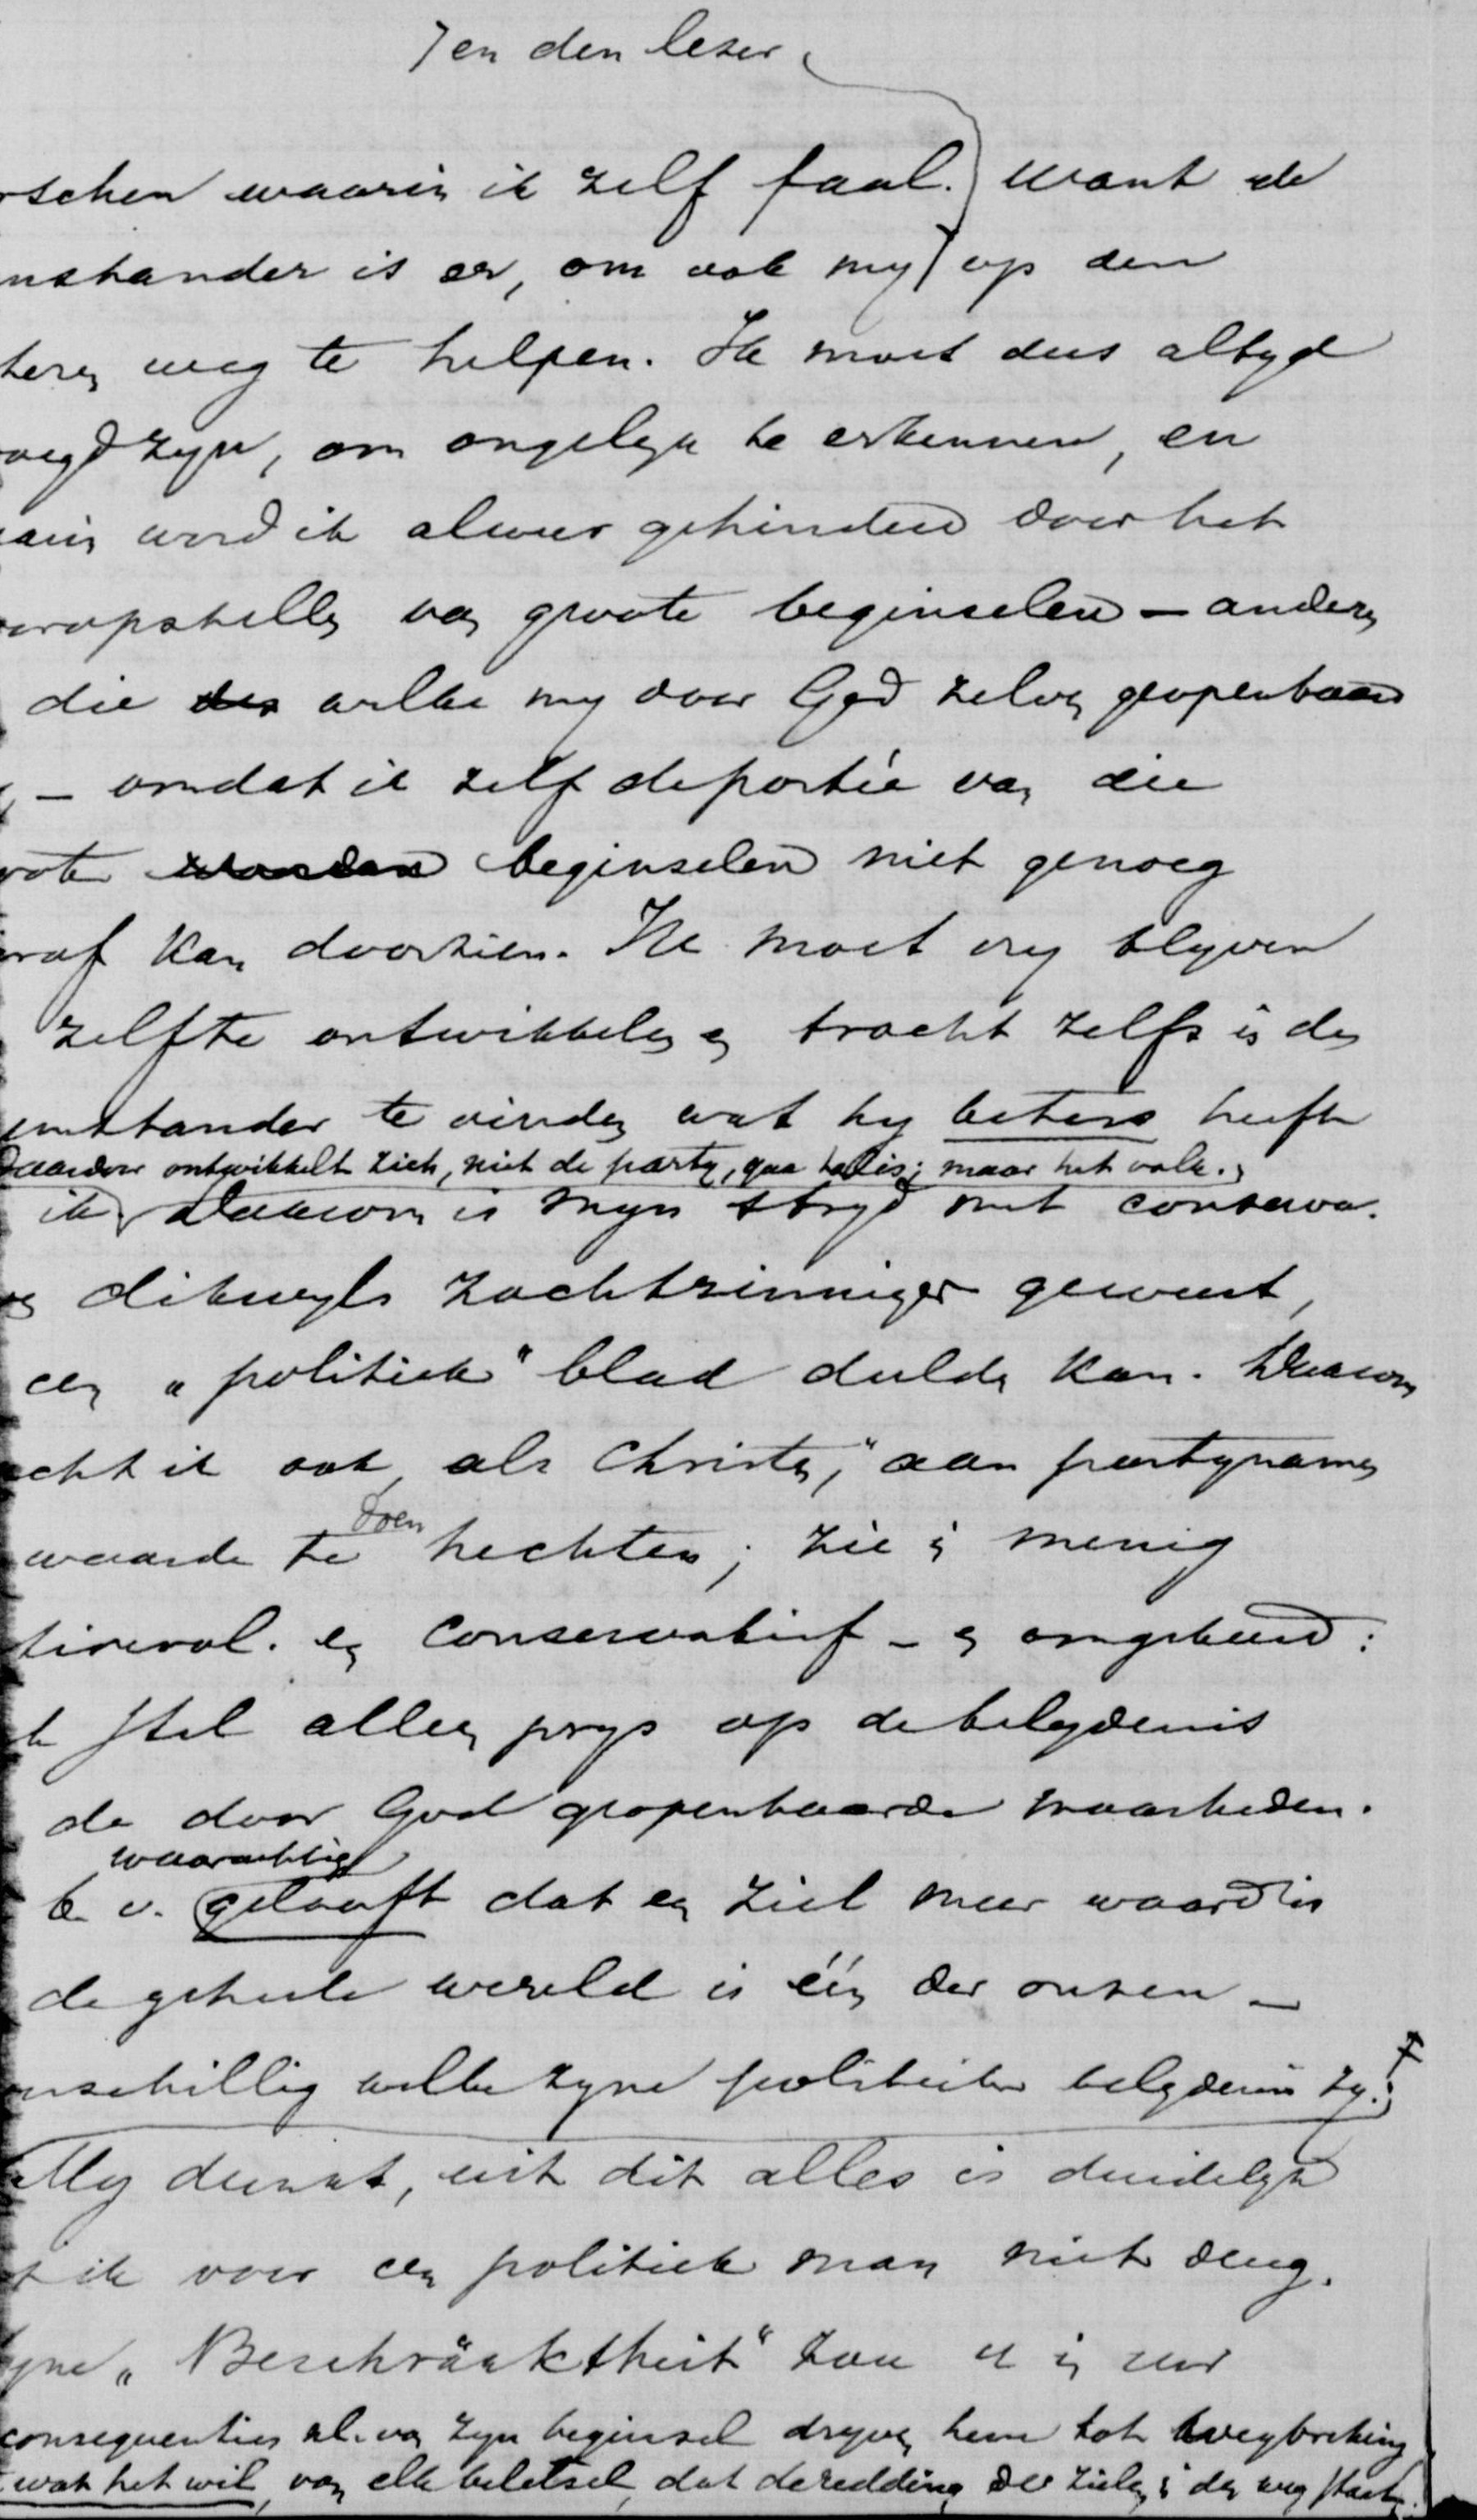 en den lezer
schen waarin ik zelf faal. want de
nstander is er, om ook my op den
teren weg te helpen. Ik moet dus altyd
oegd zyn, om ongelyk te erkennen, en
aarin word ik alweer gehinderd door het
voropstellen van groote beginselen — anders
die des welke my door God zelven geopenbaard
— omdat ik zelf de portée van die
oote woorden beginselen niet genoeg
raf kan doorzien. Ik moet vry blyven
zelfte ontwikkelen en tracht zelfs in den
enstander te vinden wat hy beters heeft
Daardoor ontwikkelt zich, niet de party, qua talis; maar het volk.
ik Daarom is myn stryd met conserva.
dikwyls zachtzinniger geweest,
een „politiek" blad dulden kan. Daarom
acht ik ook „als Christen," aan partynamen
waarde te doen hechten; zie in menig
tirevol. een Conservatief — en omgekeerd:
k stel alleen prys op de belydenis
de door God geopenbaarde waarheden.
waarachtig
b. v. gelooft dat een ziel meer waard is
de geheele wereld is één der onzen —
nschillig welke zyne politieke belydenis zy.
My dunkt, uit dit alles is duidelyk
t ik voor een politiek man niet deug.
yne „Beschränktheit" zou u in zeer
consequenties al. van zyn beginsel dryven hem tot wegbreking
wat het wil, van elk beletsel, dat de redding der zielen in den weg staat.